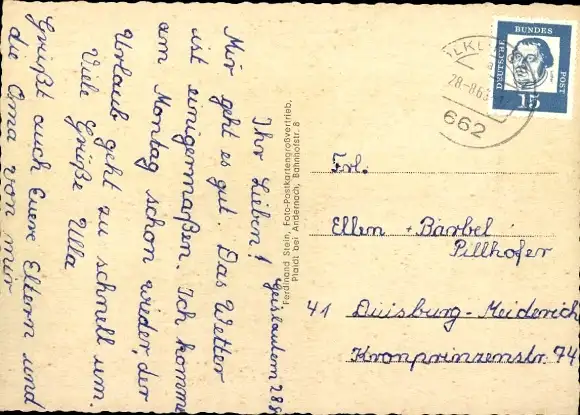 Geislautern 28.8
Ihr Lieben!
Mir geht es gut. Das Wetter
ist einigermaßen. Ich komme
am Montag schon wieder, der
Urlaub geht zu schnell um.
Viele Grüße Ulla
Grüßt auch Euere Eltern und
die Oma von mir
Ferdinand Stein, Foto-Postkartengroßvertrieb,
Plaidt bei Andernach, Bahnhofstr. 8
28.-8.63
662
DEUTSCHE BUNDESPOST
15
Frl.
Ellen + Bärbel
Pillhofer
41 Duisburg-Meiderich
Kronprinzenstr. 74